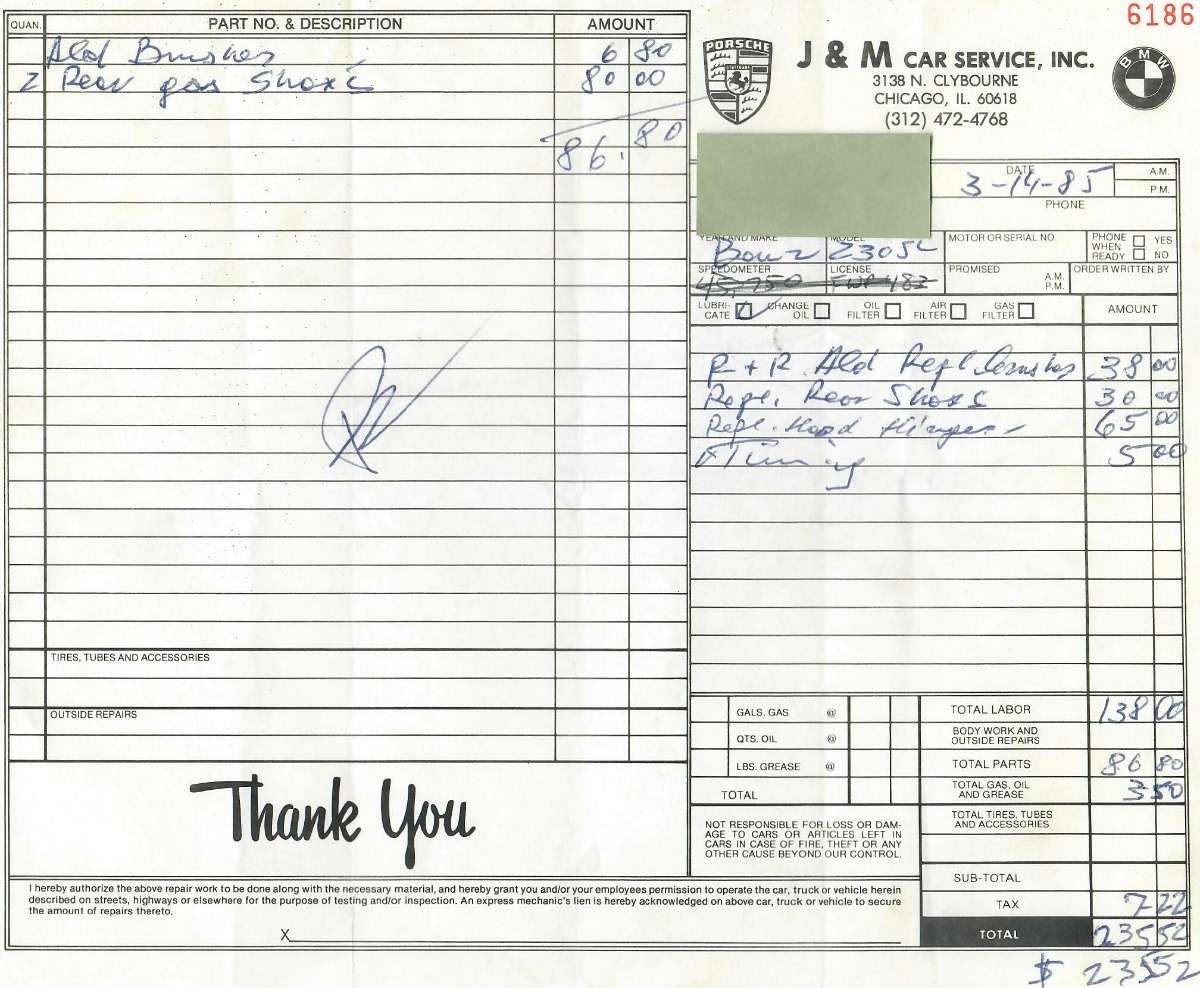 6186
QUAN. PART NO. & DESCRIPTION AMOUNT
Ald Brushes 6 80
2 Rear gas Shox's 80 00
86. 80
TIRES, TUBES AND ACCESSORIES
OUTSIDE REPAIRS
Thank You
PORSCHE
J & M CAR SERVICE, INC.
3138 N. CLYBOURNE
CHICAGO, IL. 60618
(312) 472-4768
BMW
DATE 3-14-85 A.M.
P.M.
PHONE
YEAR AND MAKE MODEL MOTOR OR SERIAL NO. PHONE WHEN READY YES NO
Benz 230SL
SPEEDOMETER LICENSE PROMISED A.M. P.M. ORDER WRITTEN BY
45,250
LUBRICATE CHANGE OIL OIL FILTER AIR FILTER GAS FILTER AMOUNT
R + R Ald Repl brushes 38 00
Repl. Rear Shoxs 30 00
Repl. Hood Hinges 65 00
Timing 5 00
GALS. GAS @ TOTAL LABOR 138 00
QTS. OIL @ BODY WORK AND OUTSIDE REPAIRS
LBS. GREASE @ TOTAL PARTS 86 80
TOTAL TOTAL GAS, OIL AND GREASE 3 50
TOTAL TIRES, TUBES AND ACCESSORIES
NOT RESPONSIBLE FOR LOSS OR DAM-
AGE TO CARS OR ARTICLES LEFT IN
CARS IN CASE OF FIRE, THEFT OR ANY
OTHER CAUSE BEYOND OUR CONTROL.
SUB-TOTAL
TAX 7 22
TOTAL 235 52
$ 235 52
I hereby authorize the above repair work to be done along with the necessary material, and hereby grant you and/or your employees permission to operate the car, truck or vehicle herein
described on streets, highways or elsewhere for the purpose of testing and/or inspection. An express mechanic's lien is hereby acknowledged on above car, truck or vehicle to secure
the amount of repairs thereto.
X